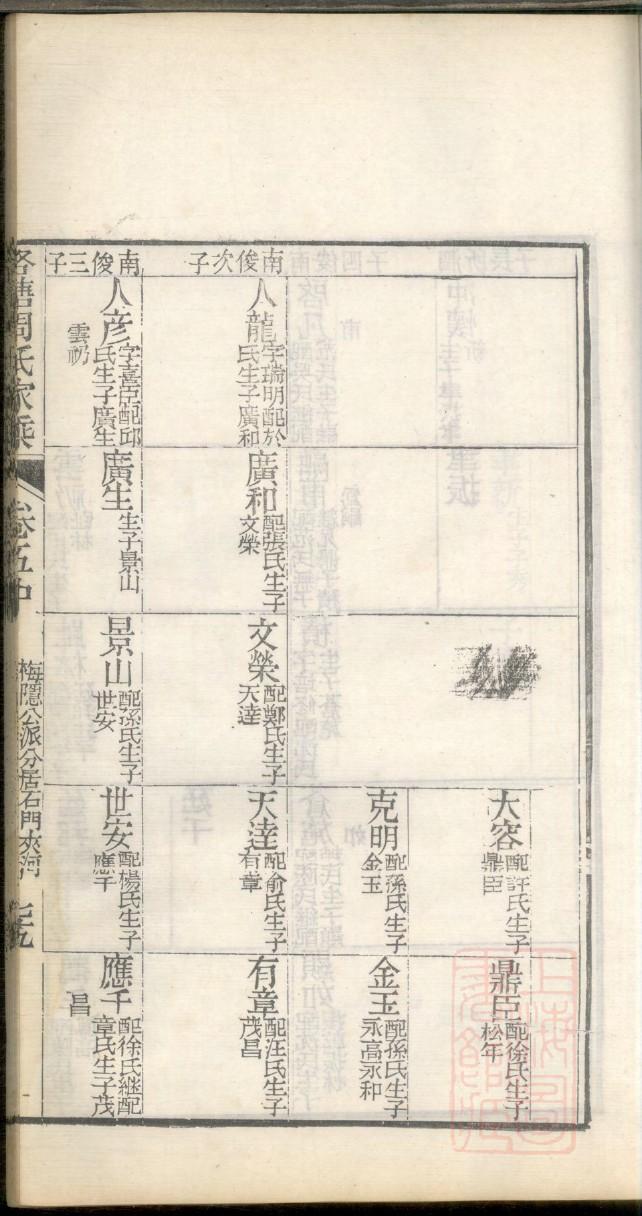 大容配許氏生子鼎臣
鼎臣配徐氏生子松年
克明配孫氏生子金玉
金玉配孫氏生子永高永和
南俊次子
人龍字瑞明配於氏生子廣和
廣和配張氏生子文榮
文榮配鄭氏生子天逵
天逵配俞氏生子有章
有章配汪氏生子茂昌
南俊三子
人彥字熹臣配邱氏生子廣生雲礽
廣生生子景山
景山配孫氏生子世安
世安配楊氏生子應千
應千配徐氏繼配章氏生子茂昌
周氏家乘
卷五中
梅隱公派分居石門夾河